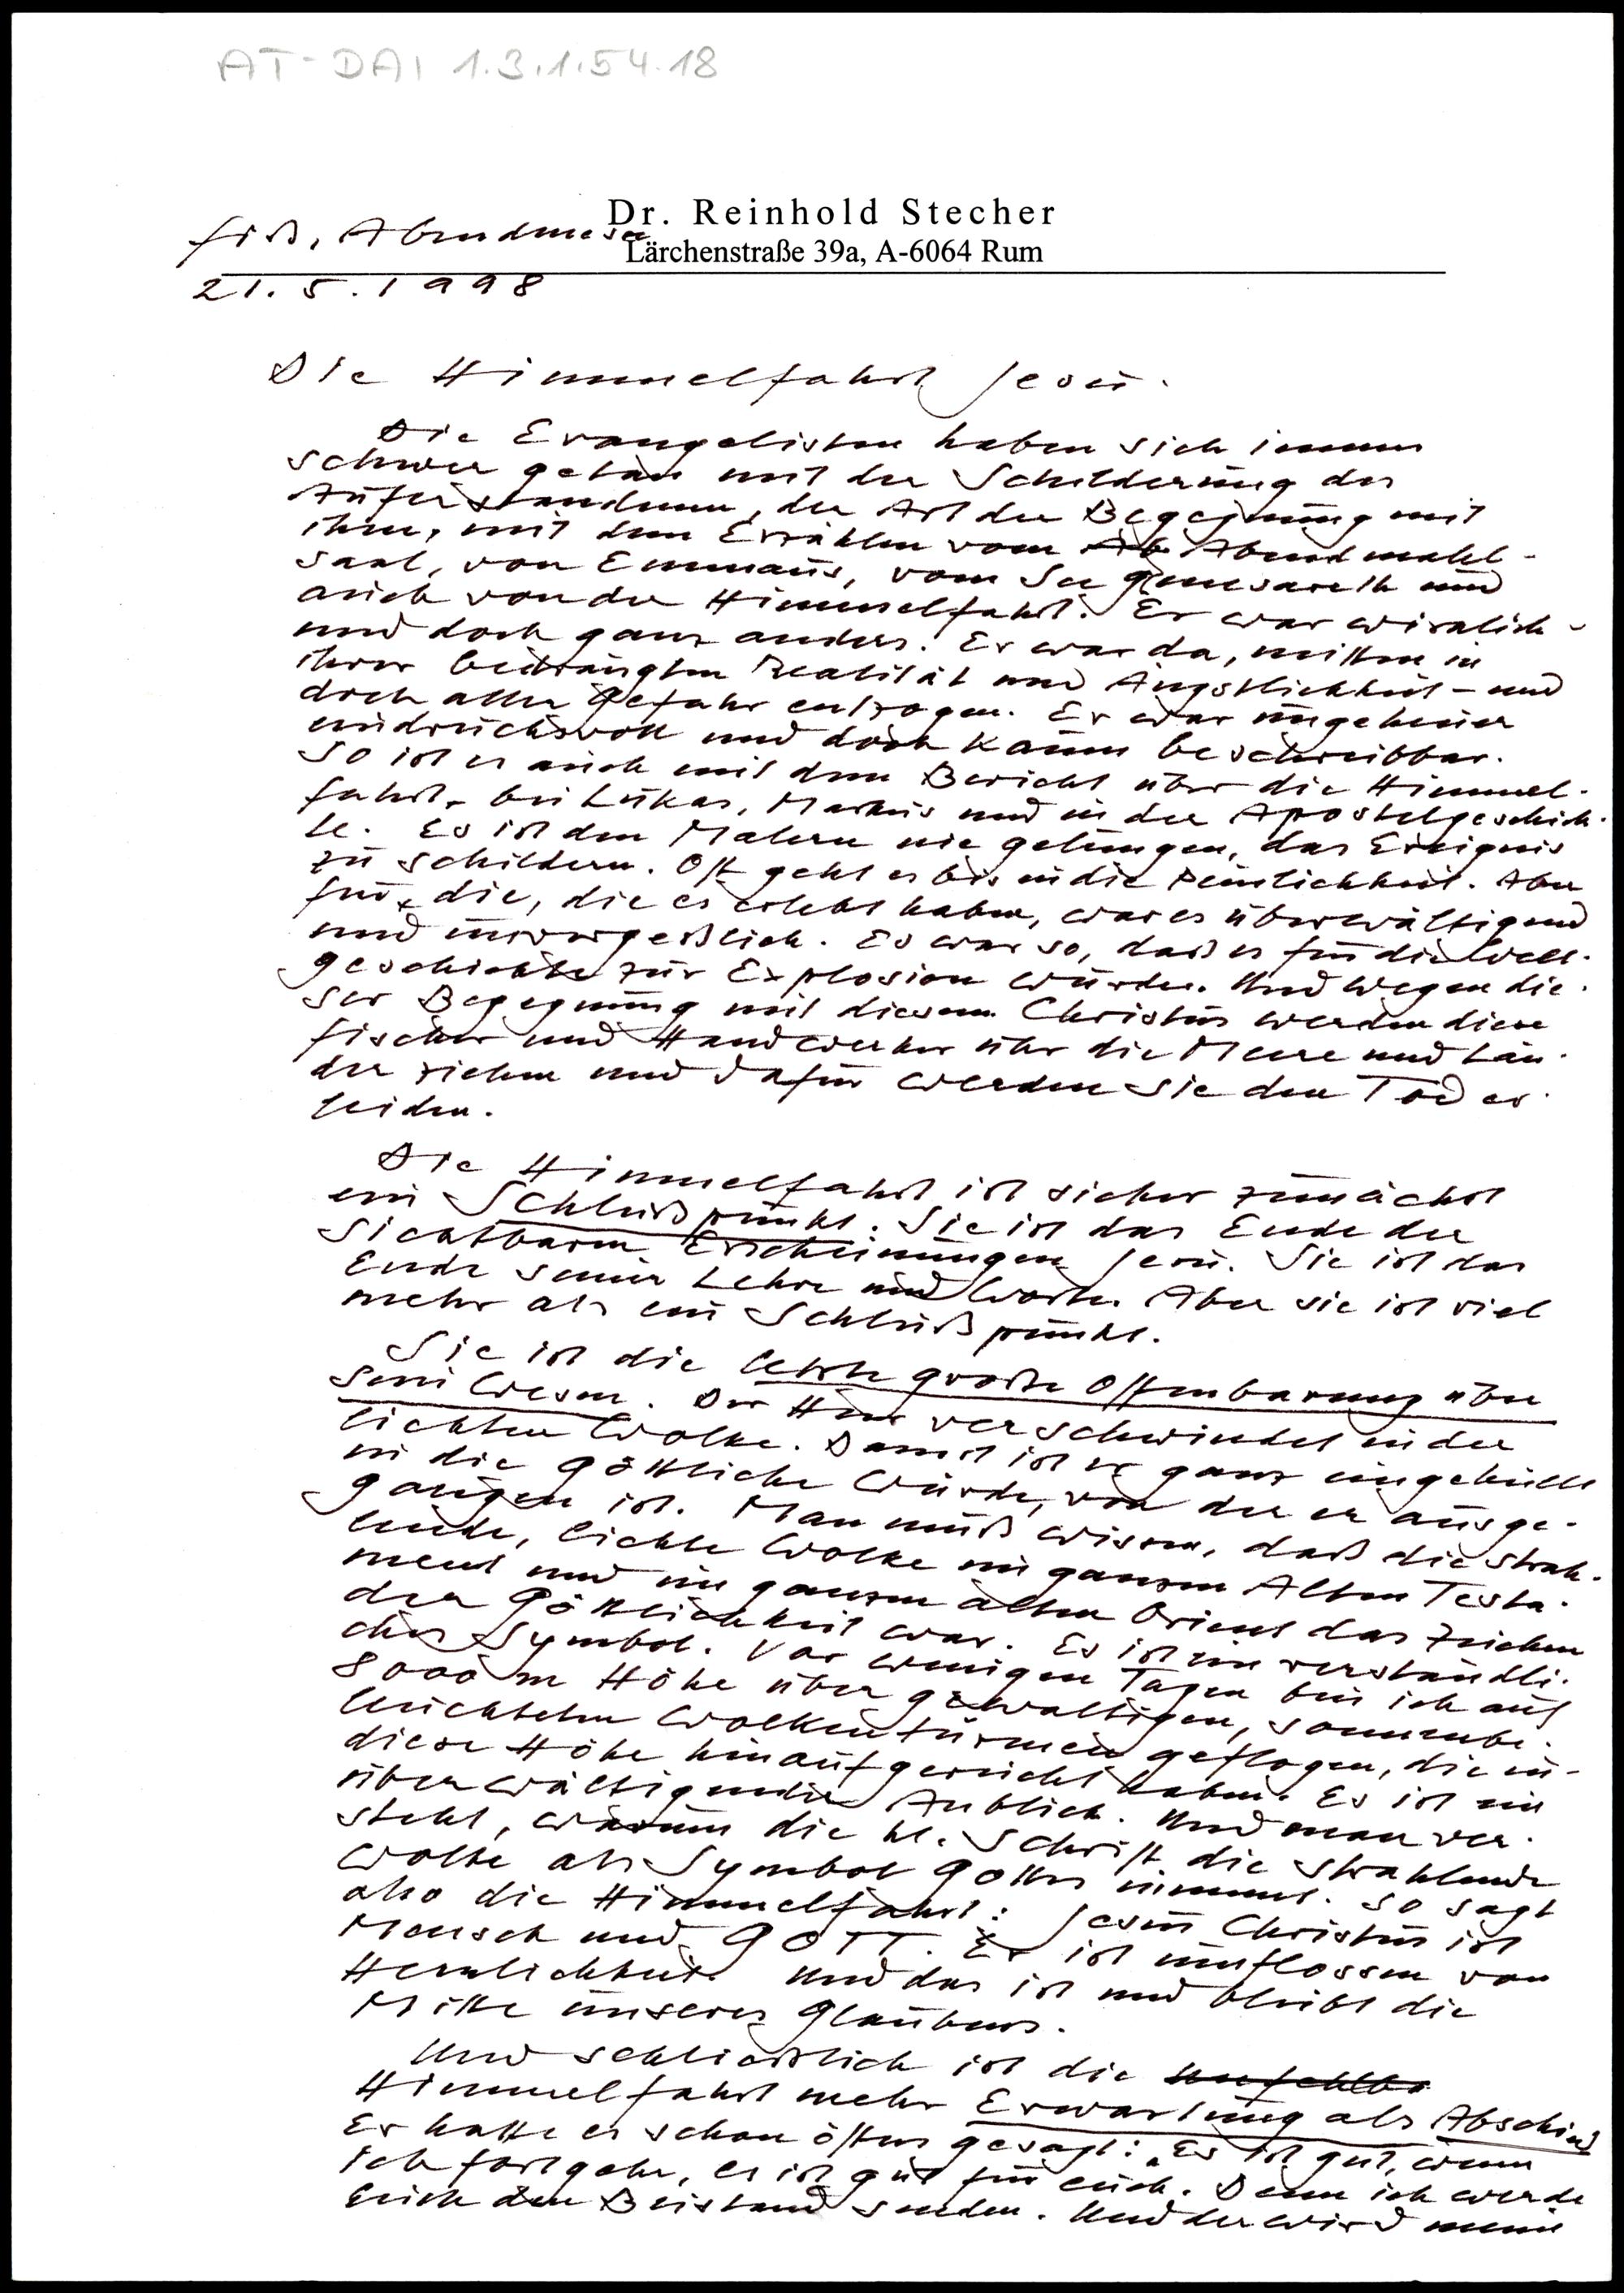 AT-DAI 1.3.1.54.18
Dr. Reinhold Stecher
Lärchenstraße 39a, A-6064 Rum
Fiß, Abendmesse
21.5.1998
Die Himmelfahrt Jesu.
Die Evangelisten haben sich immer
schwer getan mit der Schilderung des
Auferstandenen, der Art der Begegnung mit
ihm, mit dem Erzählen vom Ab Abendmahl-
saal, von Emmaus, vom See Genesareth und
auch von der Himmelfahrt. Er war wirklich -
und doch ganz anders. Er war da, mitten in
ihrer bedrängten Realität und Ängstlichkeit - und
doch aller Gefahr entzogen. Er war ungeheuer
eindrucksvoll und doch kaum beschreibbar.
So ist es auch mit dem Bericht über die Himmel-
fahrt, bei Lukas, Markus und in der Apostelgeschich-
te. Es ist den Malern nie gelungen, das Ereignis
zu schildern. Oft geht es bis in die Peinlichkeit. Aber
für die, die es erlebt haben, war es überwältigend
und unvergeßlich. Es war so, daß es für die Welt-
geschichte zur Explosion wurde. Und wegen die-
ser Begegnung mit diesem Christus werden diese
Fischer und Handwerker über die Meere und Län-
der ziehen und dafür werden sie den Tod er-
leiden.
Die Himmelfahrt ist sicher zunächst
ein Schlußpunkt. Sie ist das Ende der
sichtbaren Erscheinungen Jesu. Sie ist das
Ende seiner Lehre und Worte. Aber sie ist viel
mehr als ein Schlußpunkt.
Sie ist die letzte große Offenbarung über
sein Wesen. Der Herr verschwindet in der
lichten Wolke. Damit ist er ganz eingehüllt
in die göttliche Würde, von der er ausge-
gangen ist. Man muß wissen, daß die strah-
lende, lichte Wolke im ganzen Alten Testa-
ment und im ganzen alten Orient das Zeichen
der Göttlichkeit war. Es ist ein verständli-
ches Symbol. Vor wenigen Tagen bin ich auf
8000 m Höhe über gewaltigen, sonnenbe-
leuchteten Wolkentürmen geflogen, die in
diese Höhe hinaufgereicht haben. Es ist ein
überwältigender Anblick. Und man ver-
steht, warum die hl. Schrift die strahlende
Wolke als Symbol Gottes nimmt. So sagt
also die Himmelfahrt: Jesus Christus ist
Mensch und GOTT. Er ist umflossen von
Herrlichkeit. Und das ist und bleibt die
Mitte unseres Glaubens.
Und schließlich ist die
Himmelfahrt mehr Erwartung als Abschied
Er hatte es schon öfters gesagt: „Es ist gut, wenn
ich fortgehe, es ist gut für euch. Denn ich werde
euch den Beistand senden. Und der wird meine